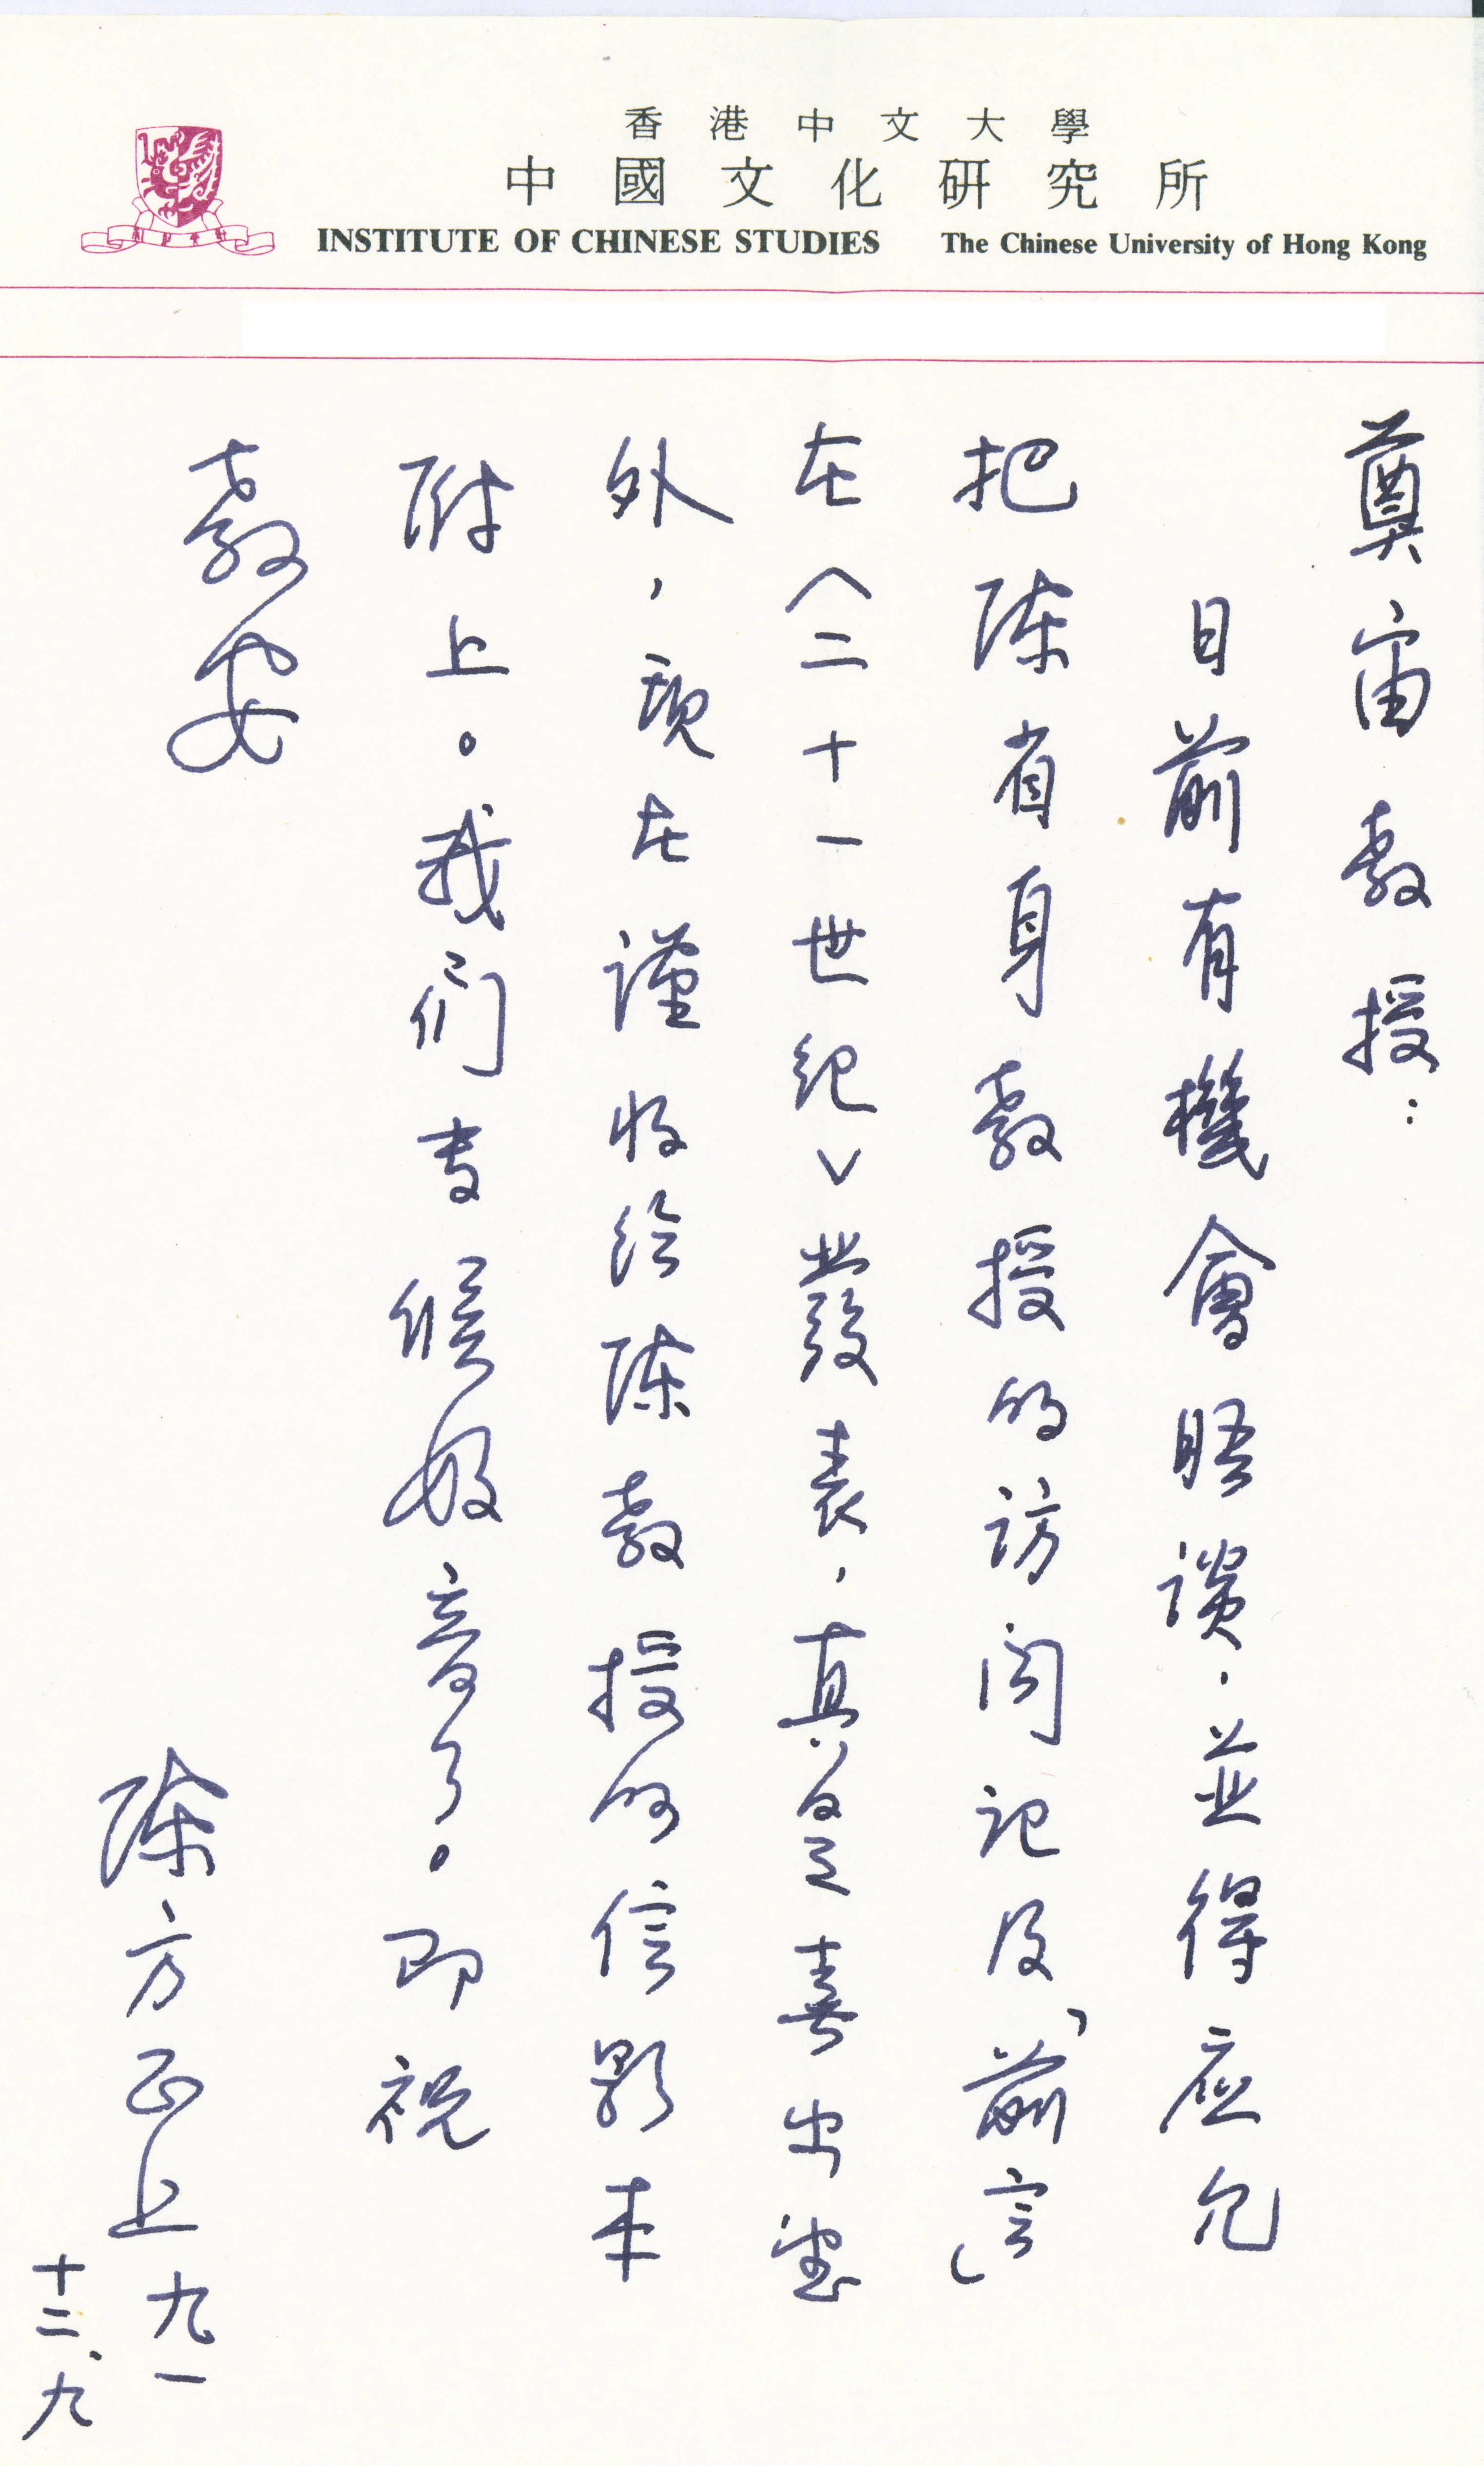 香港中文大學
中國文化研究所
INSTITUTE OF CHINESE STUDIES The Chinese University of Hong Kong
奠宙教授：
日前有機會晤談，並得應允
把陳省身教授的訪问記及「前言」
在〈二十一世紀〉發表，真是喜出望
外，現在謹將给陳教授的信影本
附上。我们专候好音了。即祝
教安
陳方正上
九一
十二、九